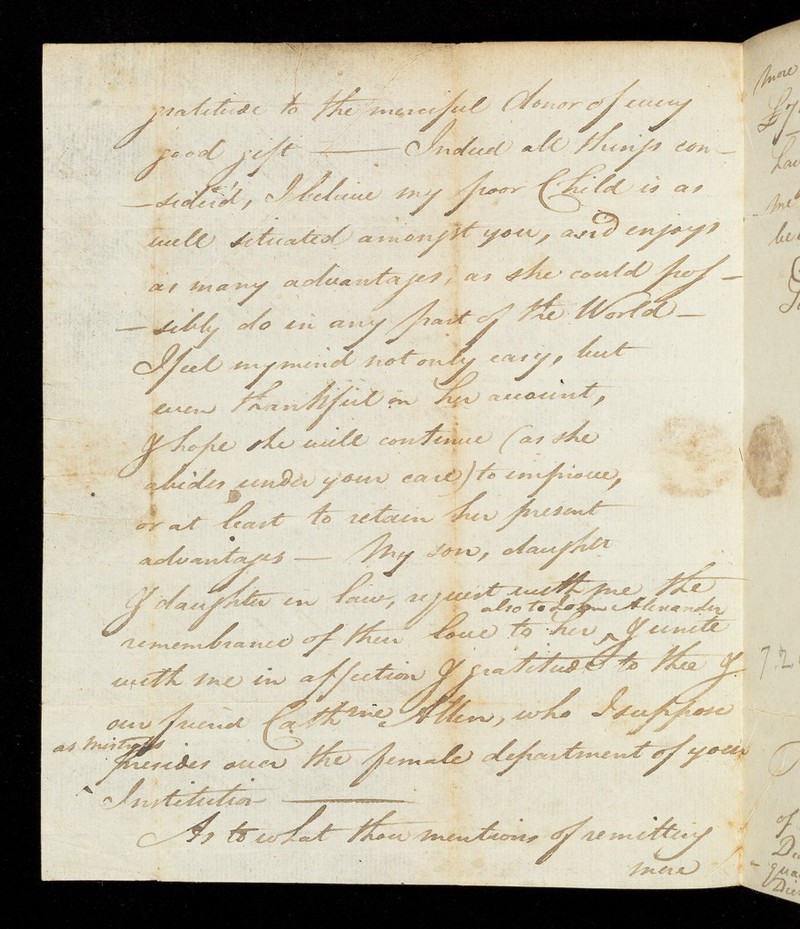 gratitude to the merciful donor of every
good gift —— Indeed all things con-
-sider'd, I believe my poor Child is as
well situated amongst you, and enjoys
as many advantages, as she could pos-
-sibly do in any part of the World -
I feel my mind not only easy, but
even thankful on her account,
& hope she will continue (as she
abides under your care) to improve,
or at least to retain her present
advantages — My son, daughter
& daughter in law, request with me the
also to Alexander
remembrance of their love to her ^ & unite
with me in affection & gratitude to thee &
our friend Cathne Allen, who I suppose
as Mistress
^ presides over the female department of your
Institution ——
As to what thou mentions of remitting
more
more
be
7.2
of